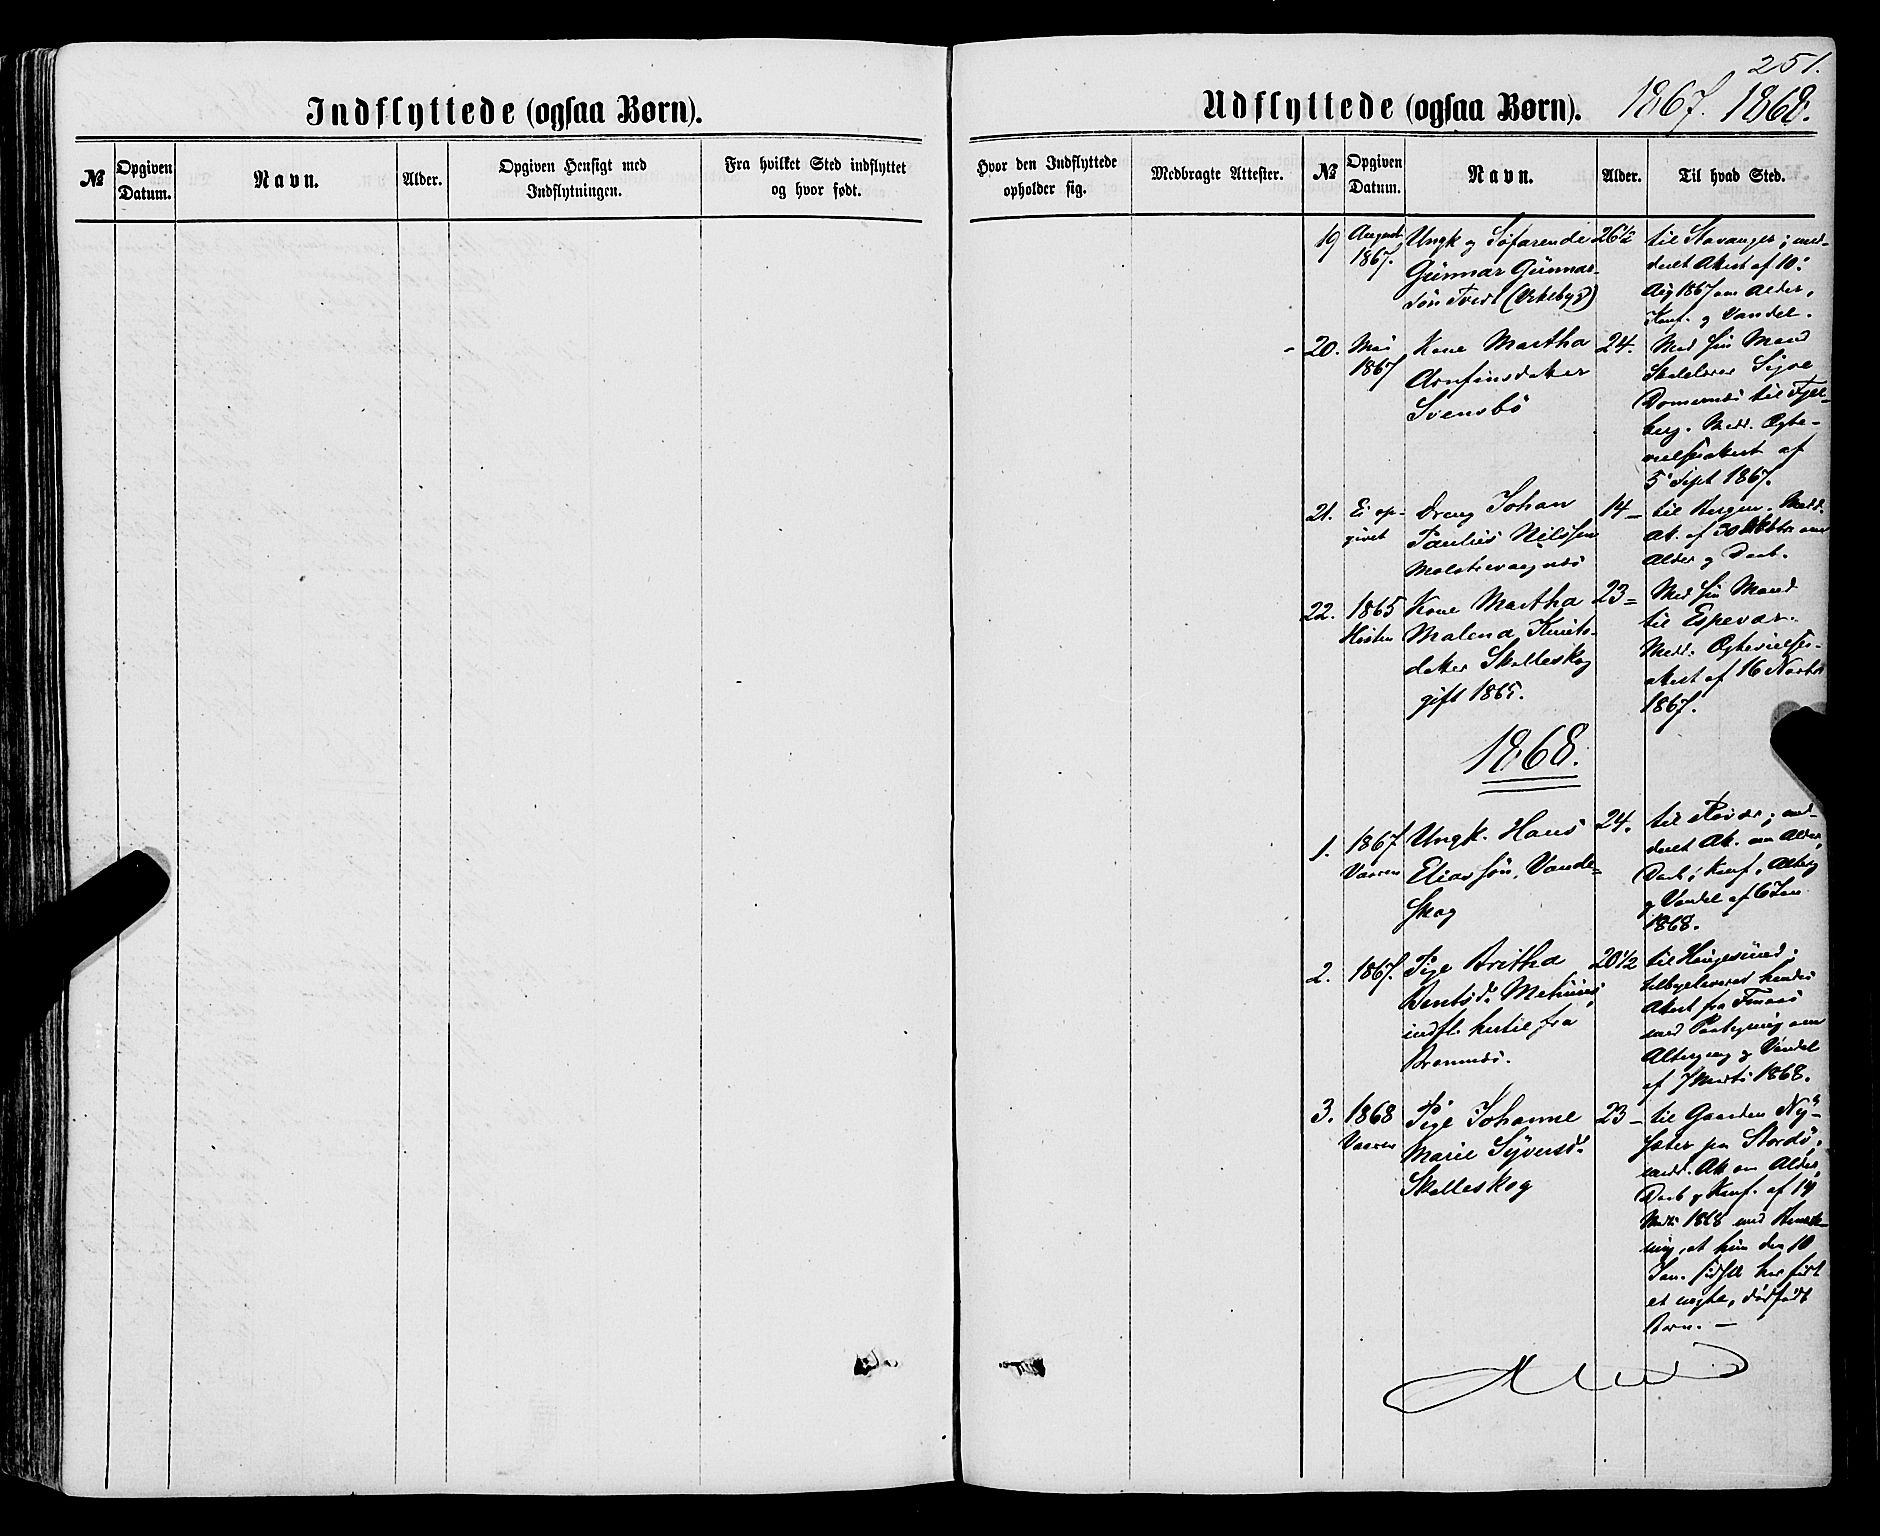 251.
Indflyttede (ogsaa Børn).
Udflyttede (ogsaa Børn). 1867. 1868.
№ Opgiven Datum. Navn. Alder. Opgiven Hensigt med Indflytningen. Fra hvilket Sted indflyttet og hvor født.
Hvor den Indflyttede opholder sig. Medbragte Attester. № Opgiven Datum. Navn. Alder. Til hvad Sted.
19 August 1867.
Ungk og Søfarende
Gunnar Gunnar-
søn Tvedt
26½
til Stavanger; med-
deelt Attest af 10:
Aug 1867 om Alder,
Konf. og Vandel.
20. Mai 1867
Kone Martha
Arnfinsdatter
Svensbø
24.
Med sin Mand
Sjove
til Fjel-
berg. Medd. Ægte-
vielsesattest af
5 Sept 1867.
21. Ei op-
givet
Dreng Johan
Paulus Nilssen
14
til Bergen. Medd.
At. af 30 Oktbr om
Alder og Daab.
22. 1865
Høsten
Kone Martha
Malena Knuts-
datter Skalleskog
gift 1865.
23
Med sin Mand
til Espevær.
Medd. Ægtevielses-
attest af 16 Novbr
1867.
1868.
1. 1867
Vaaren
Ungk. Hans
Eliassøn, Vande-
skog
24.
til Røvær; med-
deelt At. om Alder,
Daab, Konf., Alterg
og Vandel af 6 Jan
1868.
2. 1867.
Pige Britha
Berntsd.
indfl. hertil fra
20½
til Haugesund;
tilbageleveret hendes
Attest fra Finaas
med Paategning om
Altergang og Vandel
af 7 Marts 1868.
3. 1868
Vaaren
Pige Johanne
Marie Syversd.
Skalleskog
23
til Gaarden Ny-
sæter paa Stordø,
medd. At. om Alder,
Daab og Konf. af 14
Marts 1868 med Bemærk-
ning, at hun den 10
Jan. sidstl. har født
et uægte, dødfødt
Barn. —